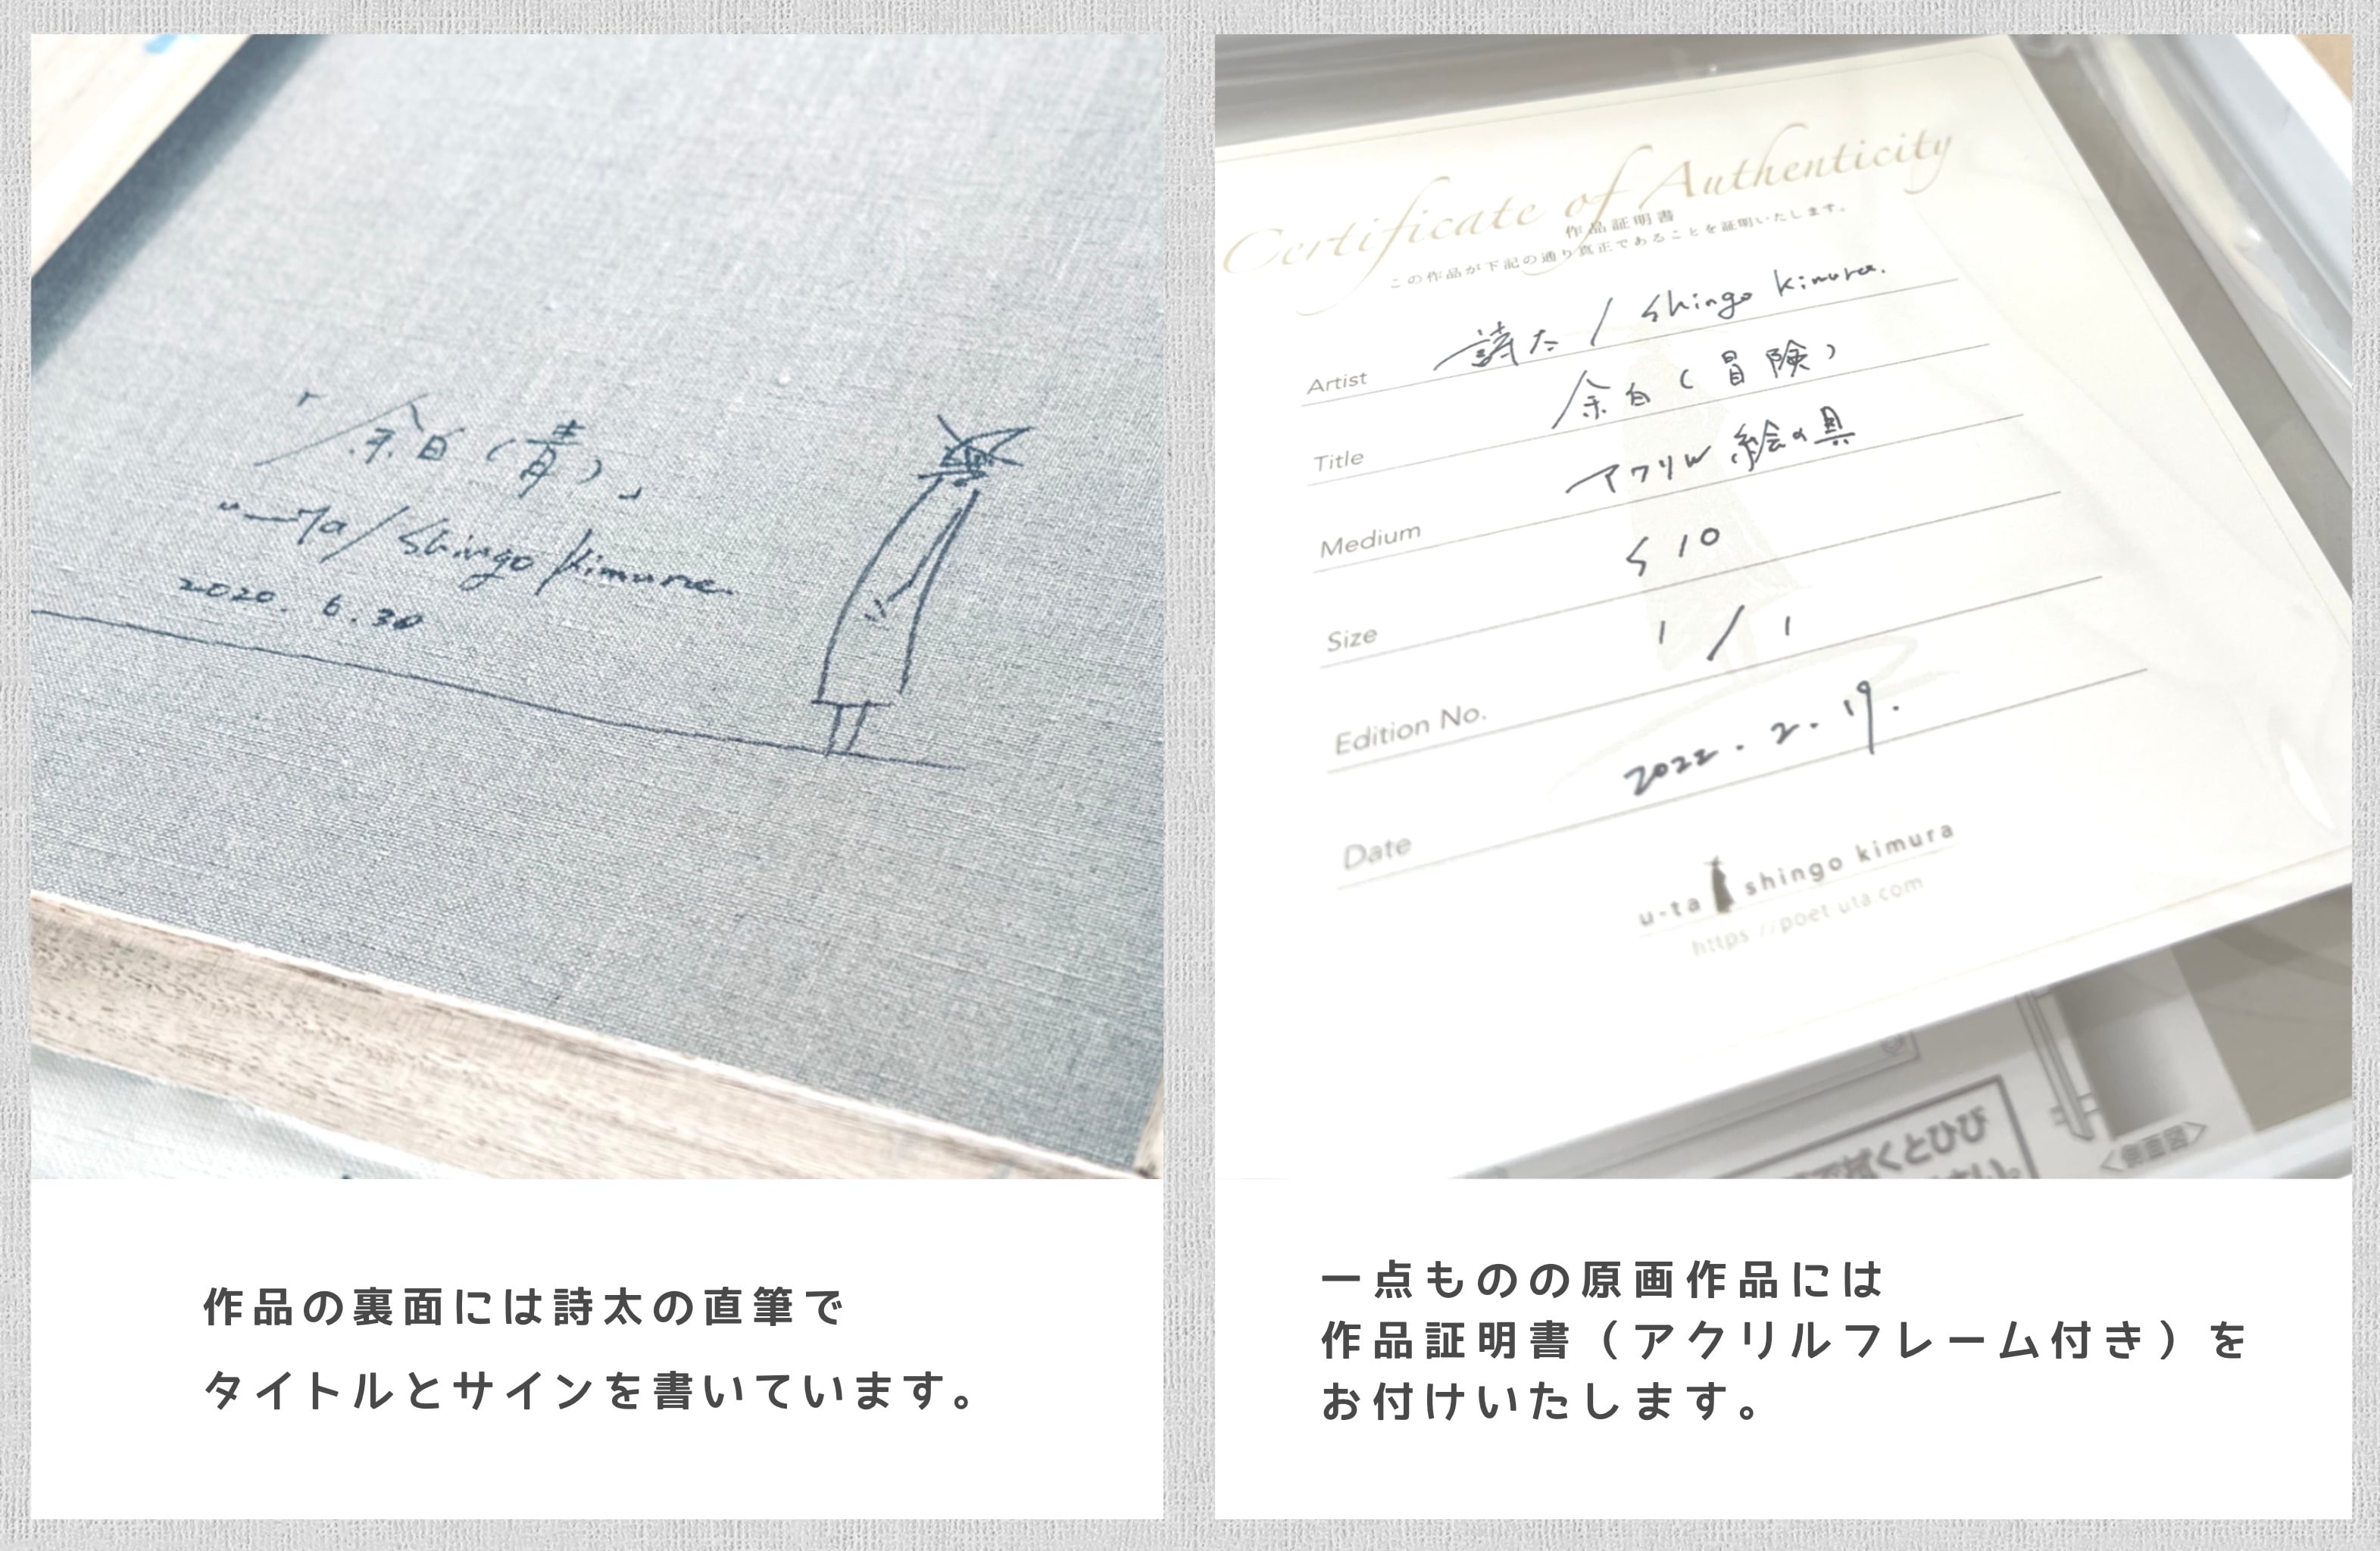 「余白(青)」
u-ta/Shingo Kimura
2020. 6.30
作品の裏面には詩太の直筆で
タイトルとサインを書いています。
Certificate of Authenticity
作品証明書
この作品が下記の通り真正であることを証明いたします。
Artist 詩太 / Shingo Kimura.
Title 余白(冒険)
Medium アクリル絵の具
Size S10
Edition No. 1/1
Date 2022.2.19.
u-ta shingo kimura
https://poet-uta.com
拭くとひび
さい。
<側面図>
一点ものの原画作品には
作品証明書(アクリルフレーム付き)を
お付けいたします。